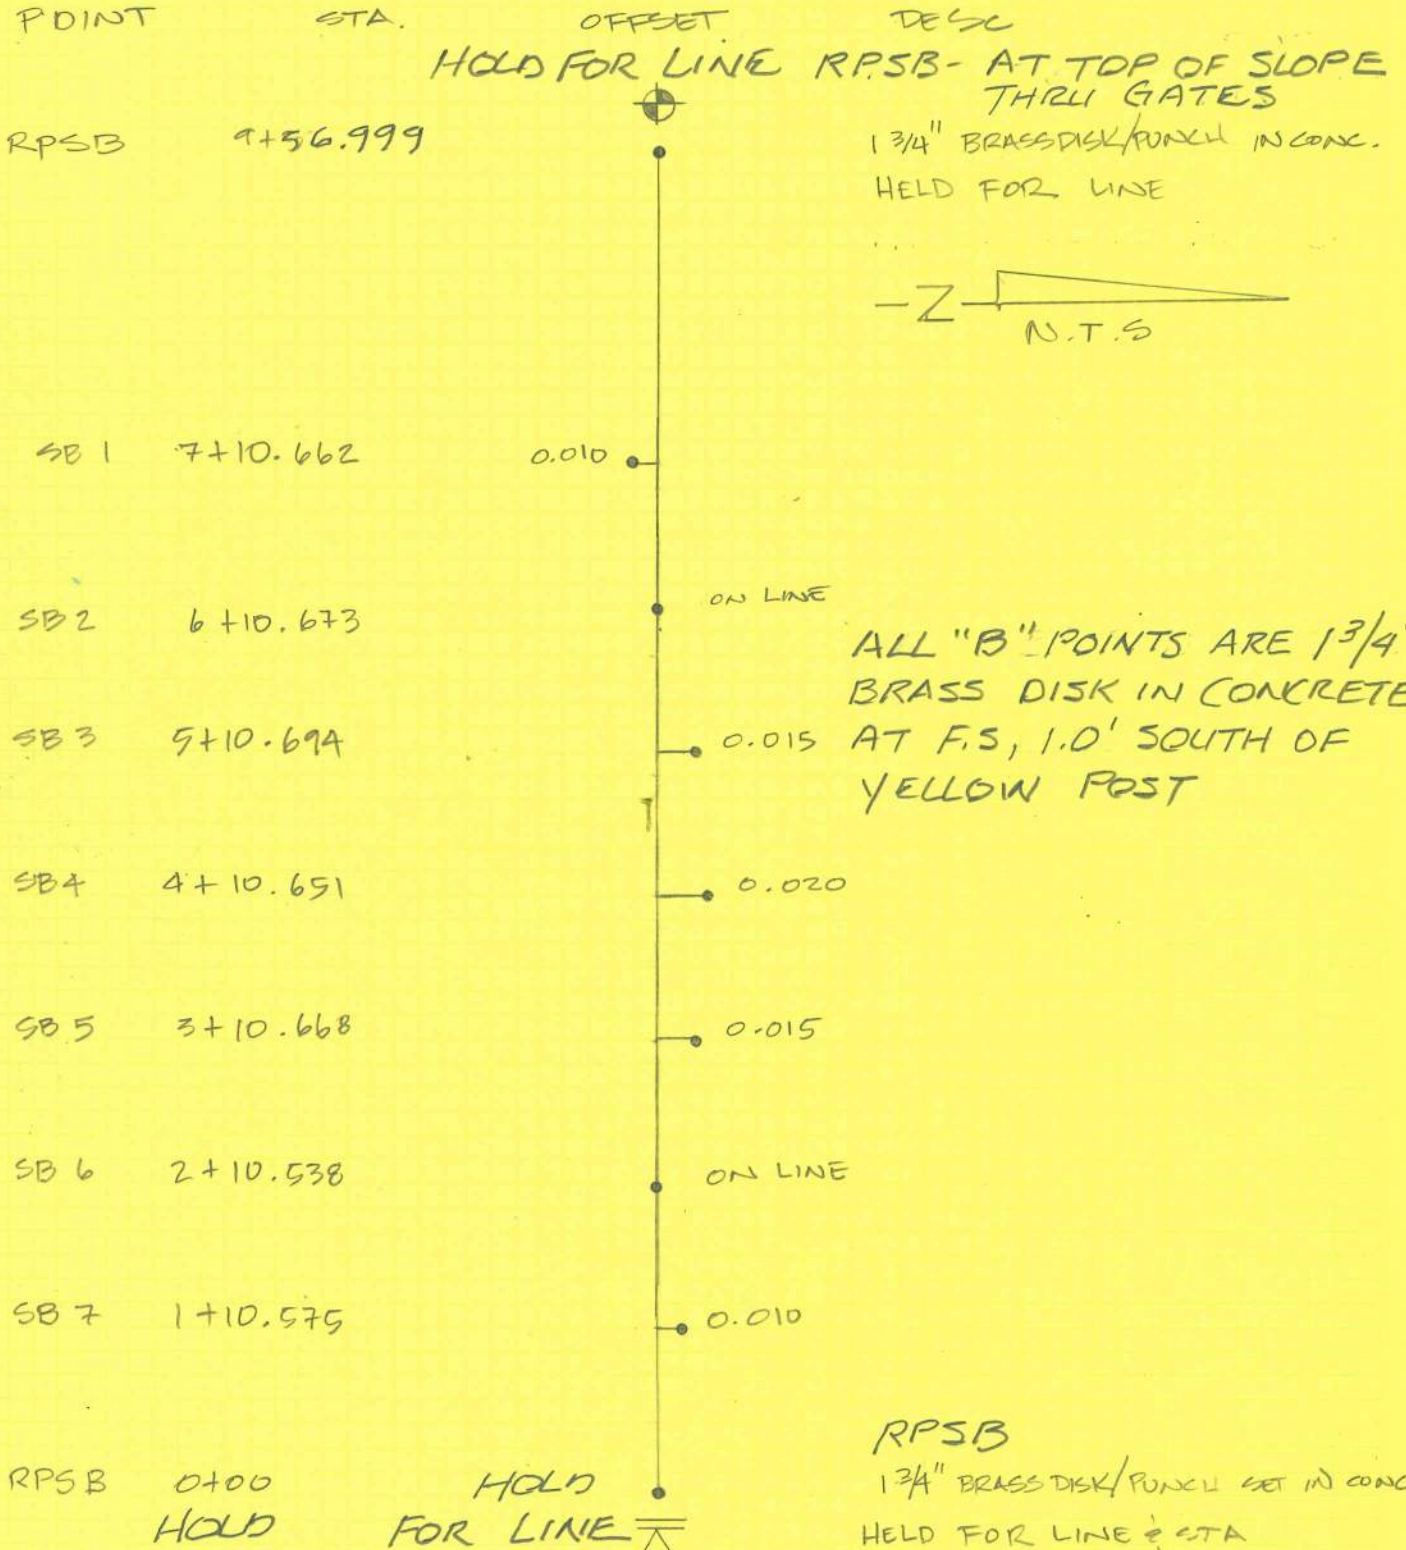 POINT STA. OFFSET DESC
HOLD FOR LINE RPSB - AT TOP OF SLOPE
THRU GATES
RPSB 9+56.999 1 3/4" BRASS DISK/PUNCH IN CONC.
HELD FOR LINE
N
N.T.S
SB 1 7+10.662 0.010
SB 2 6+10.673 ON LINE
ALL "B" POINTS ARE 1 3/4"
BRASS DISK IN CONCRETE
SB 3 5+10.694 0.015 AT F.S, 1.0' SOUTH OF
YELLOW POST
SB4 4+10.651 0.020
SB 5 3+10.668 0.015
SB 6 2+10.538 ON LINE
SB 7 1+10.575 0.010
RPSB
RPSB 0+00 HOLD 1 3/4" BRASS DISK/PUNCH SET IN CONC
HOLD FOR LINE HELD FOR LINE & STA